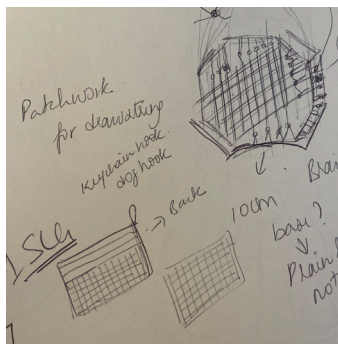 Patchwork
for drawstring
Keychain hook.
dog hook
→ Back
10cm
base?
Plain
not